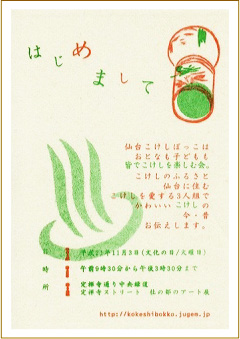 はじめまして
仙台こけしぼっこは
おとなも子どもも
皆でこけしを楽しむ会。
こけしのふるさと
仙台に住む
こけしを愛する3人組で
かわいいこけしの
今・昔
お伝えします。
日 平成22年11月3日(文化の日/水曜日)
時 午前9時30分から午後3時30分まで
所 定禅寺通り中央緑道
定禅寺ストリート 杜の都のアート展
http://kokeshibokko.jugem.jp